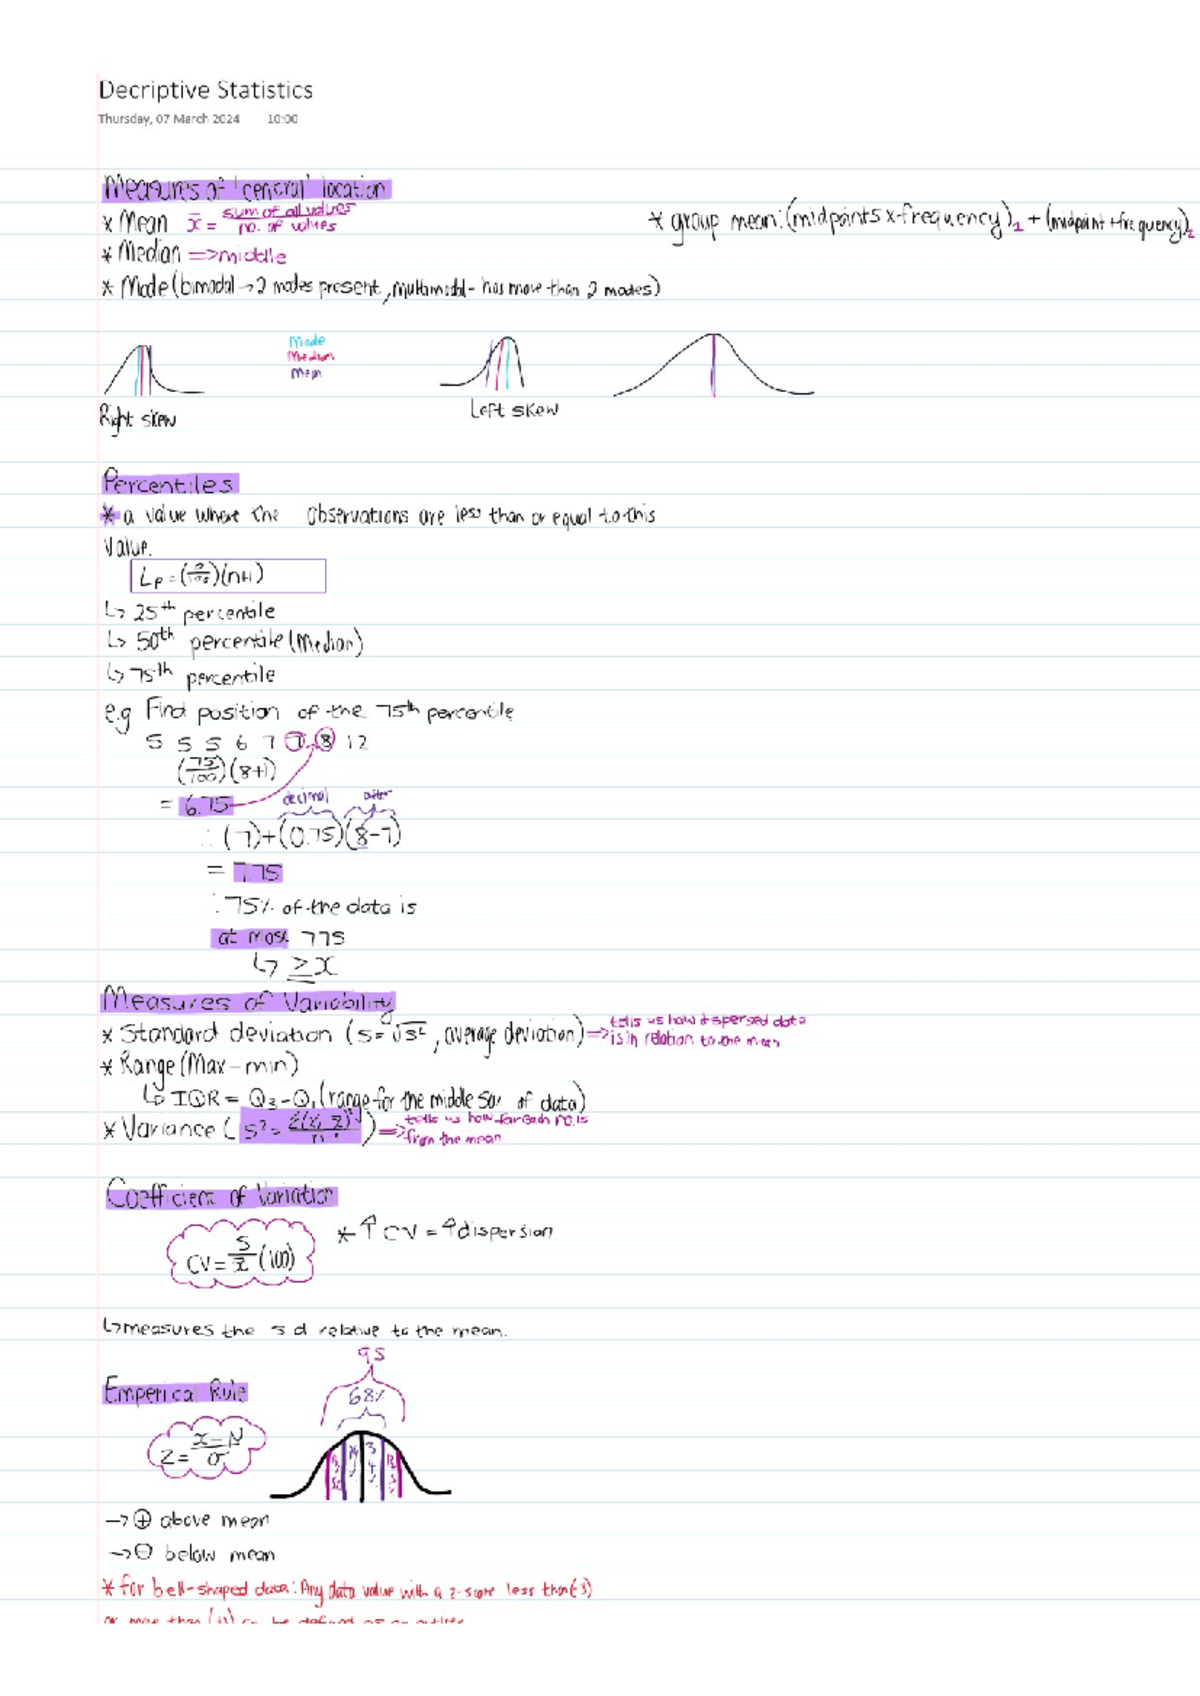 Decriptive Statistics
Thursday, 07 March 2024 10:00
Measures of 'central' location
* Mean x̄ = sum of all values / no. of values
* group mean: (midpoints x frequency)₁ + (midpoint + frequency)₂
* Median => middle
* Mode (bimodal → 2 modes present, multimodal - has more than 2 modes)
Mode
Median
Mean
Right skew
Left skew
Percentiles
* a value where the observations are less than or equal to this
value.
Lp = (P/100)(n+1)
↳ 25th percentile
↳ 50th percentile (Median)
↳ 75th percentile
e.g Find position of the 75th percentile
5 5 5 6 7 7 8 12
(75/100)(8+1)
= 6.75
decimal after
∴ (7)+(0.75)(8-7)
= 7.75
∴ 75% of the data is
at most 7.75
↳ ≥x
Measures of Variability
* Standard deviation (s = √s², average deviation) => tells us how dispersed data
is in relation to the mean
* Range (Max - min)
↳ IQR = Q₃ - Q₁ (range for the middle 50% of data)
* Variance (s² = Σ(xᵢ-x̄)²/n-1) => tells us how far each no. is
from the mean
Coefficient of Variation
CV = s/x̄ (100)
* ↑ CV = ↑ dispersion
↳ measures the s d relative to the mean.
95
68%
Emperical Rule
z = x-μ/σ
→ ⊕ above mean
→ ⊖ below mean
* for bell-shaped data: Any data value with a z-score less than (-3)
or more than (+3) can be defined as an outlier